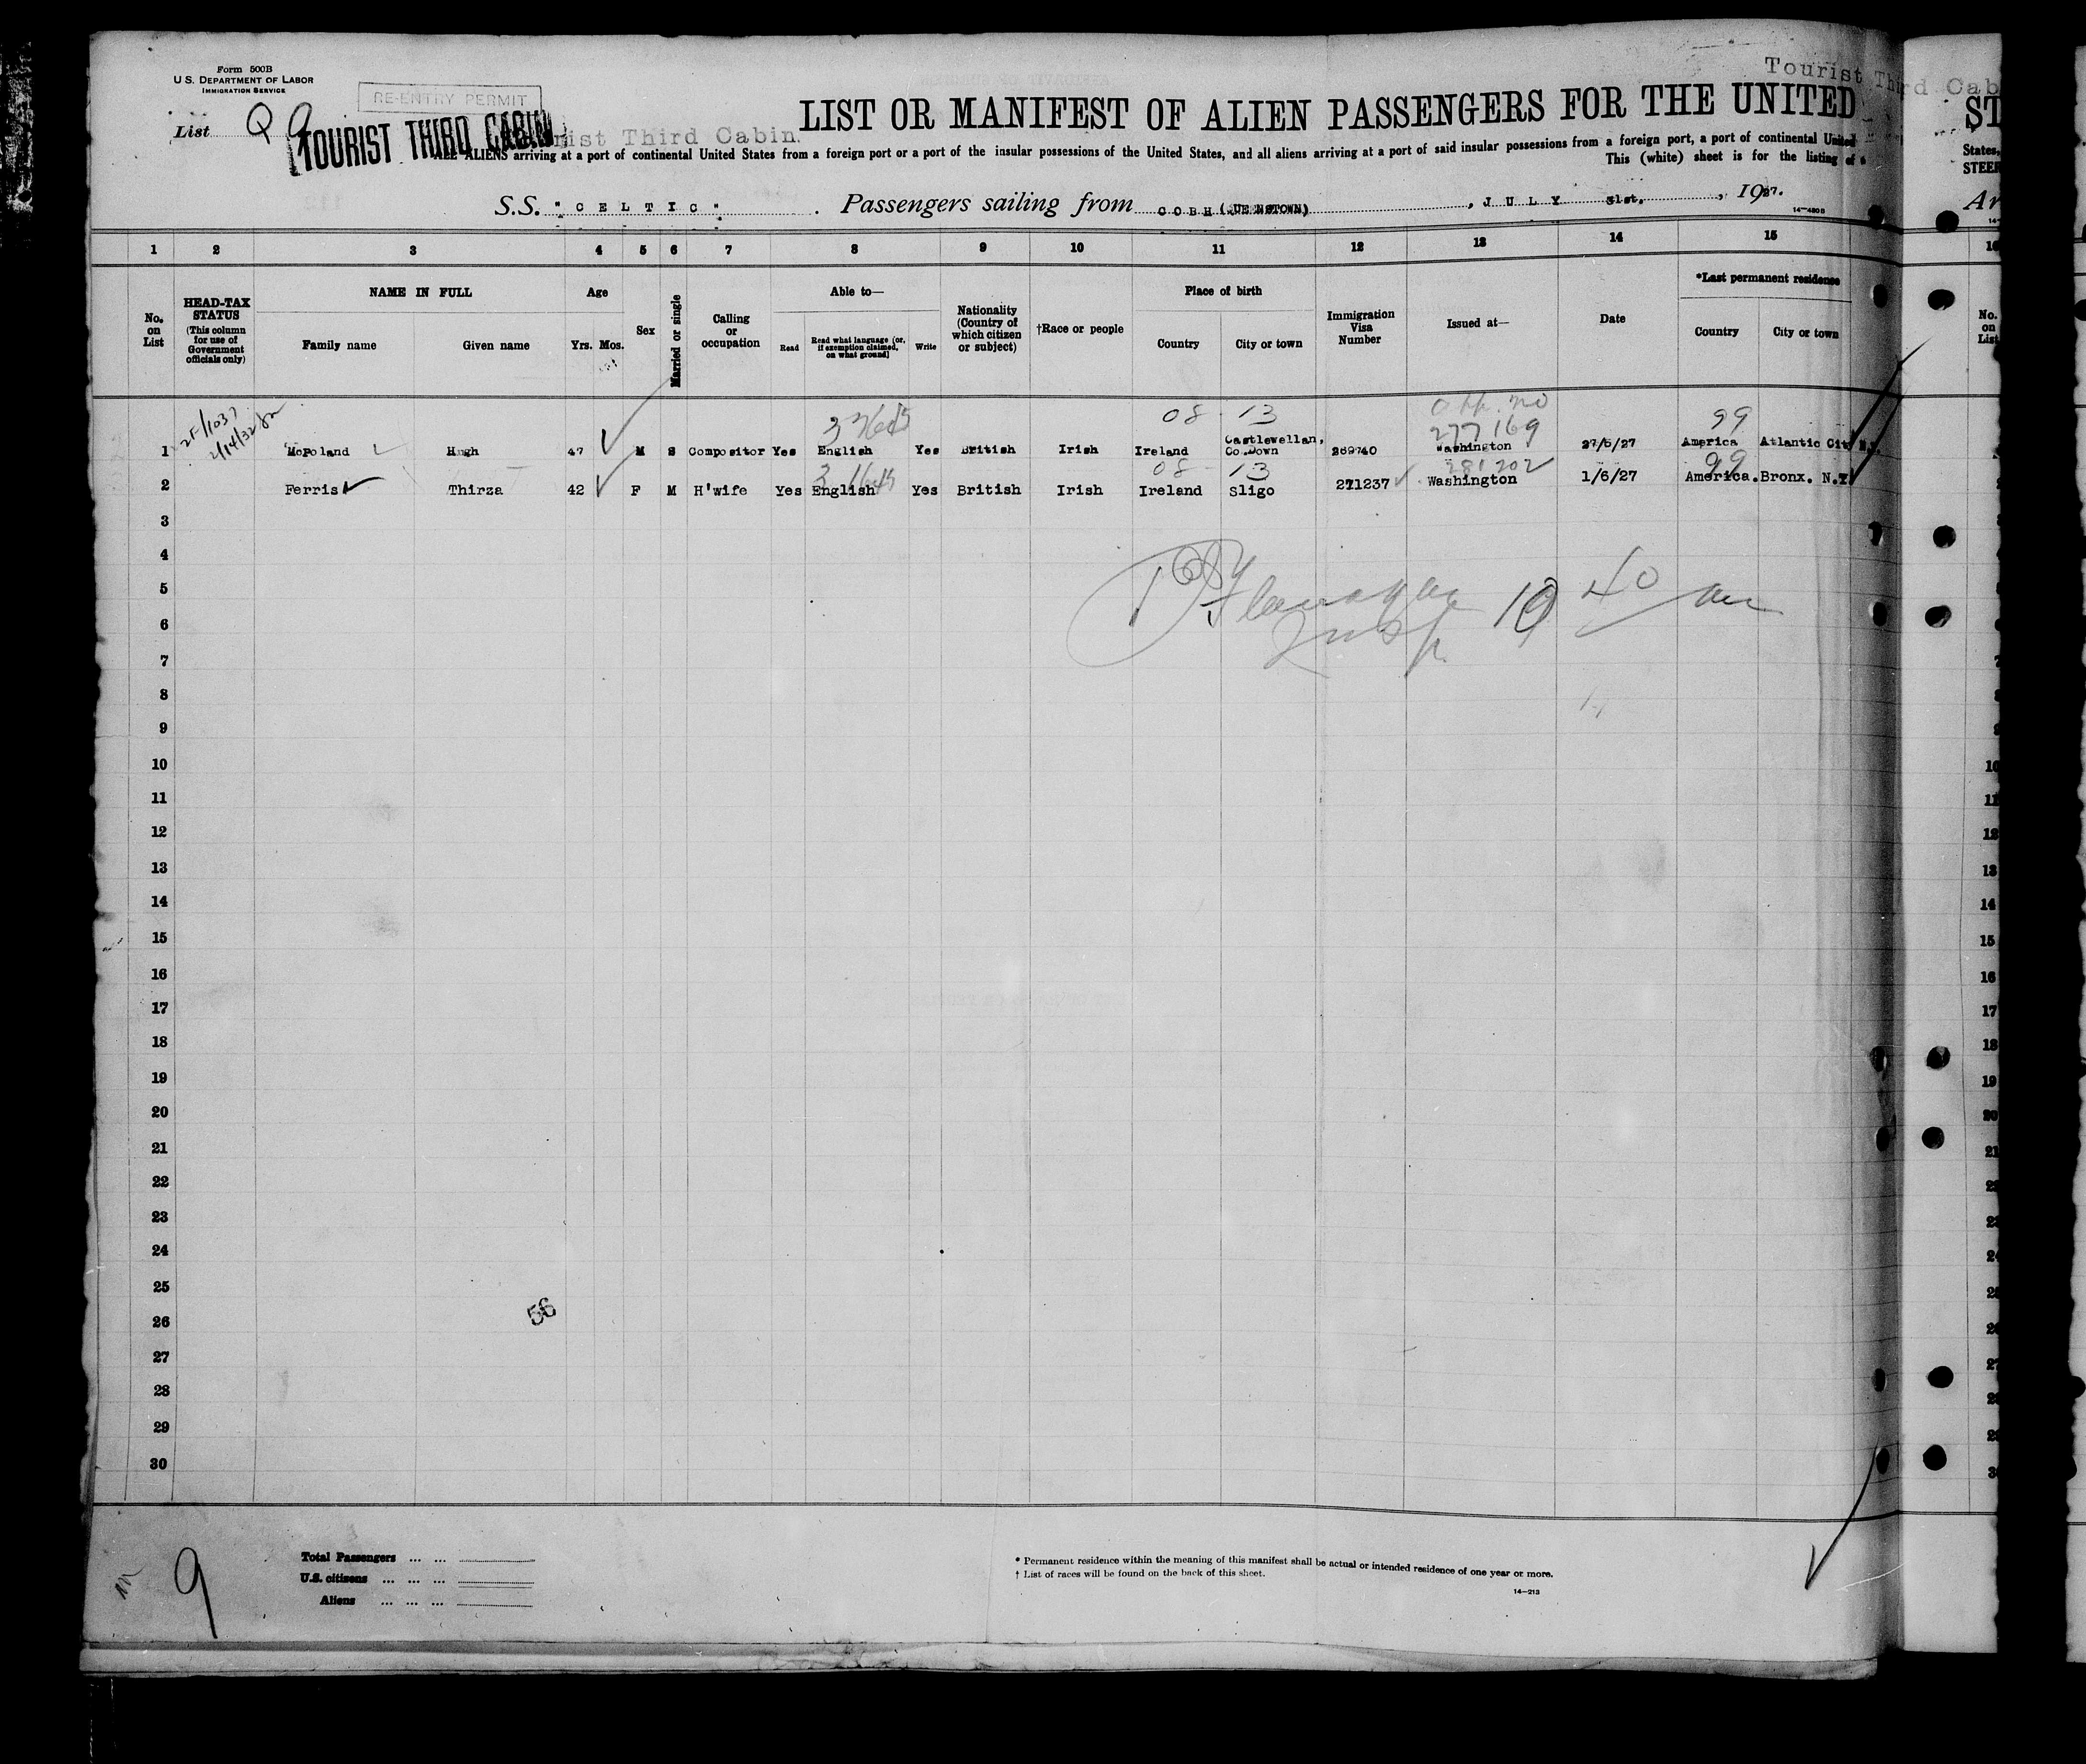 Form 500B
U.S. DEPARTMENT OF LABOR
IMMIGRATION SERVICE
RE-ENTRY PERMIT
Tourist Third Cab
List
TOURIST THIRD CABIN
ist Third Cabin
LIST OR MANIFEST OF ALIEN PASSENGERS FOR THE UNITED
ST
ALL ALIENS arriving at a port of continental United States from a foreign port or a port of the insular possessions of the United States, and all aliens arriving at a port of said insular possessions from a foreign port, a port of continental United
States,
This (white) sheet is for the listing of
STEER
S.S. "CELTIC". Passengers sailing from COBH (QUEENSTOWN), JULY 31st., 1927.
Ar
14-480B
1 2 3 4 5 6 7 8 9 10 11 12 13 14 15
16
No. on List
HEAD-TAX STATUS (This column for use of Government officials only)
NAME IN FULL
Family name
Given name
Age
Yrs. Mos.
Sex
Married or single
Calling or occupation
Able to—
Read
Read what language (or, if exemption claimed, on what ground)
Write
Nationality (Country of which citizen or subject)
†Race or people
Place of birth
Country
City or town
Immigration Visa Number
Issued at—
Date
*Last permanent residence
Country
City or town
No. on List
2/14/32
08 13
277169
99
1 McPoland Hugh 47 M S Compositor Yes English Yes British Irish Ireland Castlewellan, Co.Down 269740 Washington 27/5/27 America Atlantic City N.J.
08 13
281202
99
2 Ferris Thirza 42 F M H'wife Yes English Yes British Irish Ireland Sligo 271237 Washington 1/6/27 America. Bronx. N.Y.
3
4
5
Flanagan 10 40 am
6
Insp.
7
8
9
10
11
12
13
14
15
16
17
18
19
20
21
22
23
24
25
56
26
27
28
29
30
9
Total Passengers ... ...
U.S. citizens ... ... ...
Aliens ... ... ...
* Permanent residence within the meaning of this manifest shall be actual or intended residence of one year or more.
† List of races will be found on the back of this sheet.
14-213